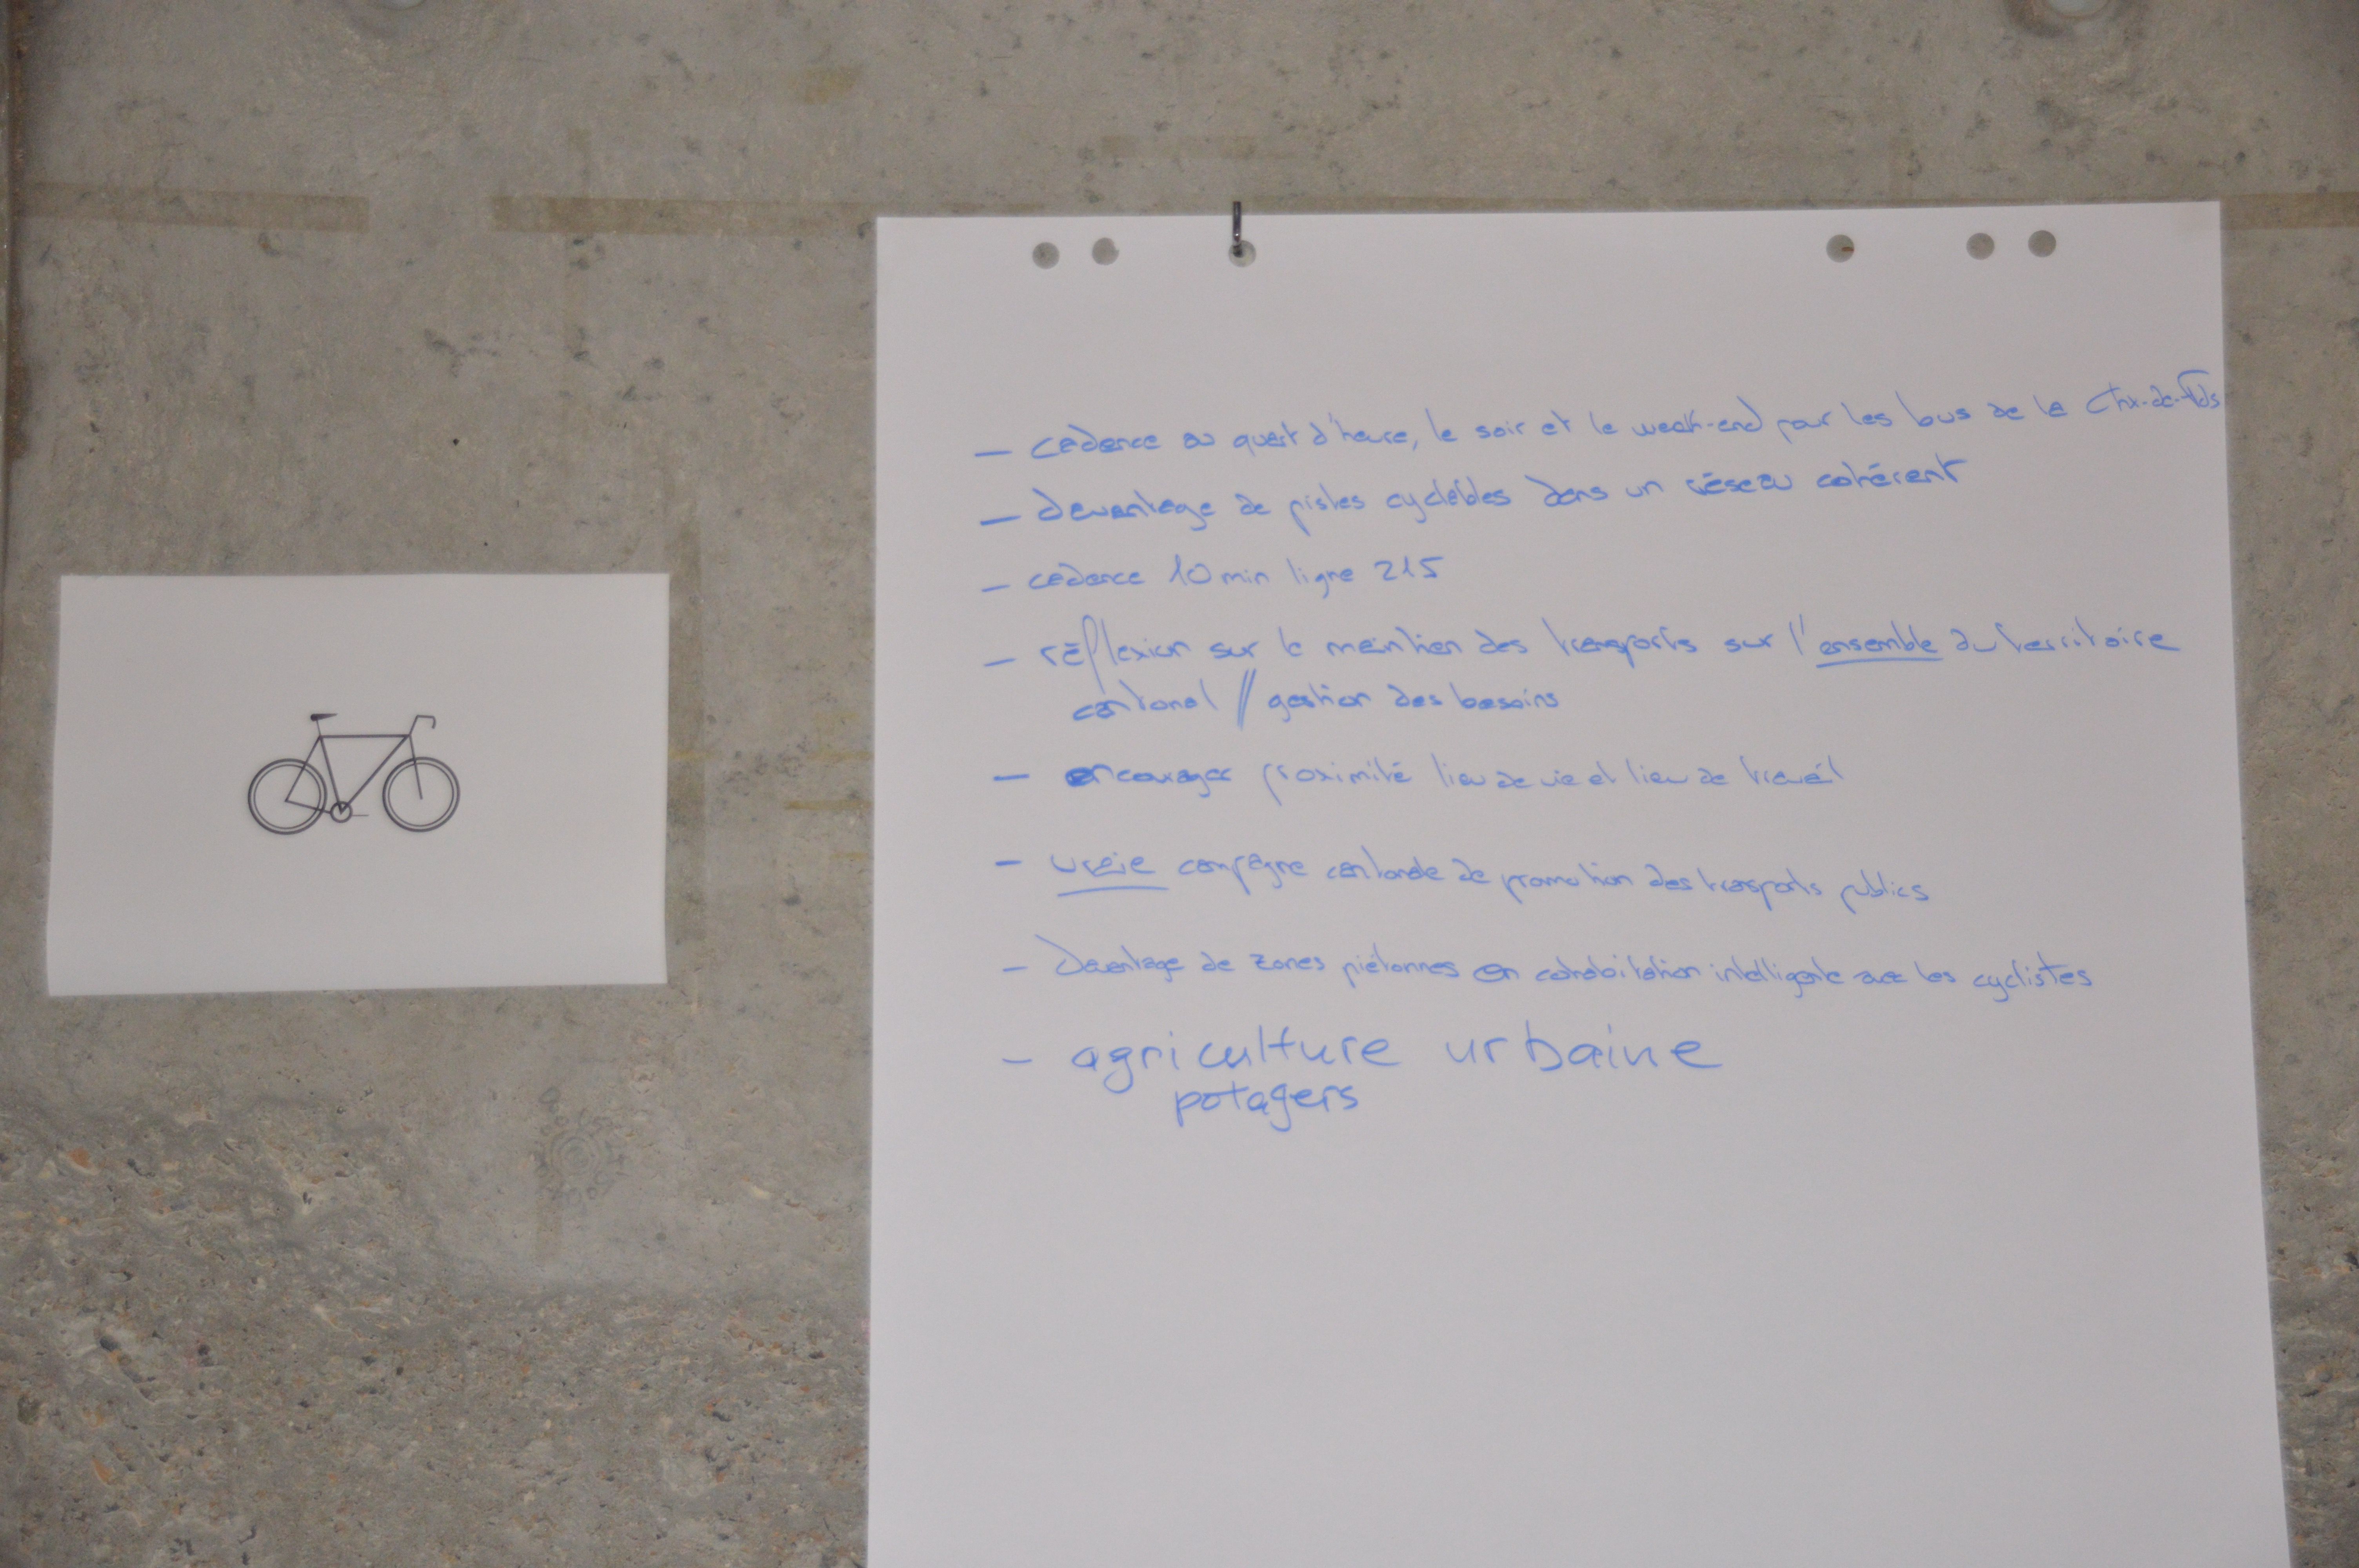 — cadence au quart d'heure, le soir et le week-end pour les bus de la Chx-de-Fds
— davantage de pistes cyclables dans un réseau cohérent
— cadence 10 min ligne 215
— réflexion sur le maintien des transports sur l'ensemble du territoire
cantonal // gestion des besoins
— encourager proximité lieu de vie et lieu de travail
— vraie campagne cantonale de promotion des transports publics
— Davantage de zones piétonnes en cohabitation intelligente avec les cyclistes
— agriculture urbaine
potagers